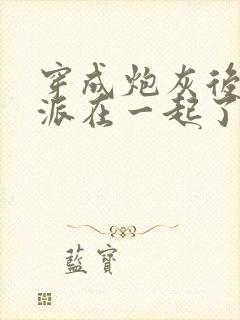 穿成炮灰後
派在一起了
藍寶